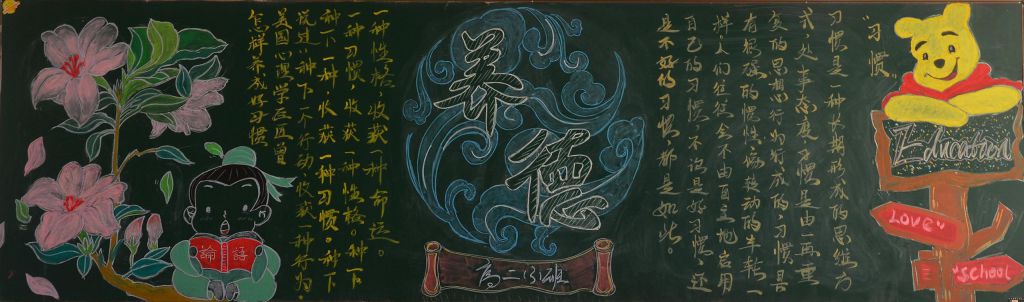 养德
高二
"习惯"
习惯是一种长期形成的思维方
式、处事态度,习惯是由一再重
复的思想行为形成的,习惯具
有很强的惯性,像转动的车轮一
样。人们往往会不由自主地启用
自己的习惯,不论是好习惯还
是不好的习惯,都是如此。
怎样养成好习惯
美国心理学巨匠曾
说过:种下一个行动收获一种行为.
种下一种收获一种习惯。种下
一种习惯,收获一种性格。种下
一种性格,收获一种命运。
論語
Education
LOVE
"School